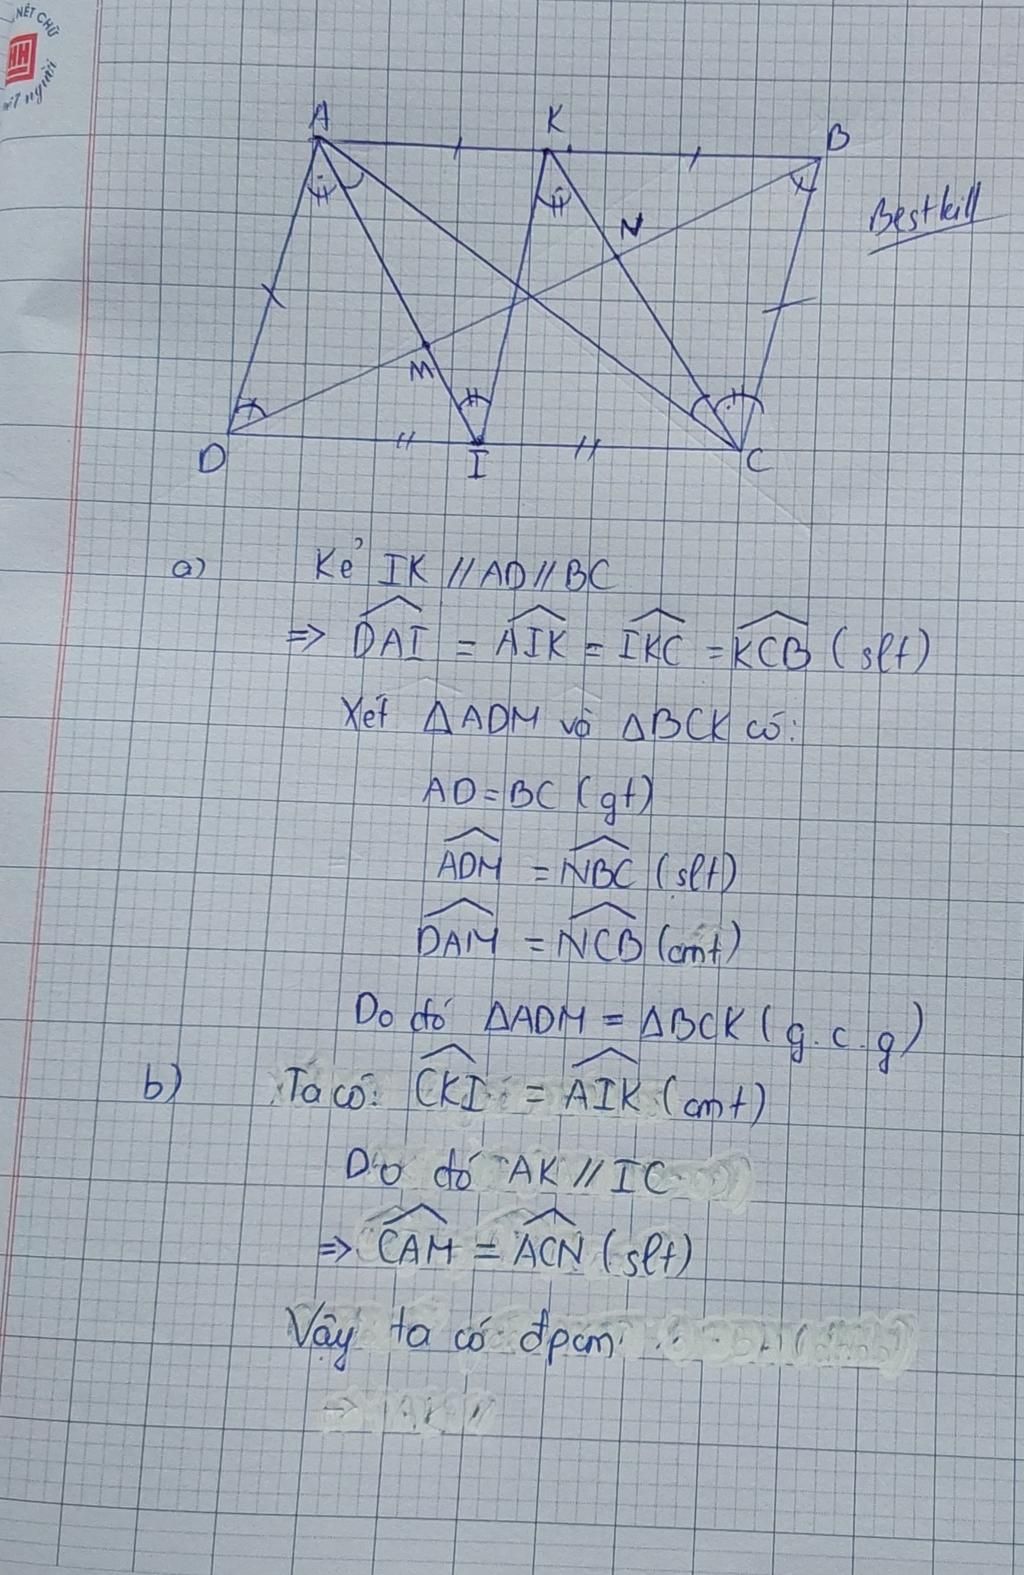 NÉT CHỮ
HH
nết người
A
K
B
N
Bestkill
M
D
I
C
a) Kẻ IK // AD // BC
=> \widehat{DAI} = \widehat{AIK} = \widehat{IKC} = \widehat{KCB} (slt)
Xét ΔADM và ΔBCK có:
AD = BC (gt)
\widehat{ADM} = \widehat{NBC} (slt)
\widehat{DAM} = \widehat{NCB} (cmt)
Do đó ΔADM = ΔBCK (g.c.g)
b) Ta có: \widehat{CKI} = \widehat{AIK} (cmt)
Do đó AK // IC
=> \widehat{CAM} = \widehat{ACN} (slt)
Vậy ta có đpcm